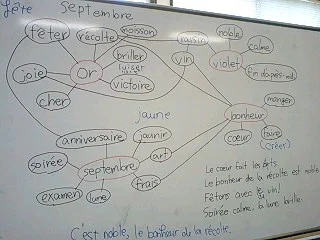 fête Septembre
fêter récolte moisson raisin noble
calme
briller
luiser
joie or vin violet
victoire
cher
manger
jaune bonheur
anniversaire jaunir cœur faire
(créer)
soirée septembre art
examen lune frais
Le cœur fait les arts.
Le bonheur de la récolte est noble
Fêtons avec le vin!
Soirée calme, la lune brille.
C'est noble, le bonheur de la récolte.